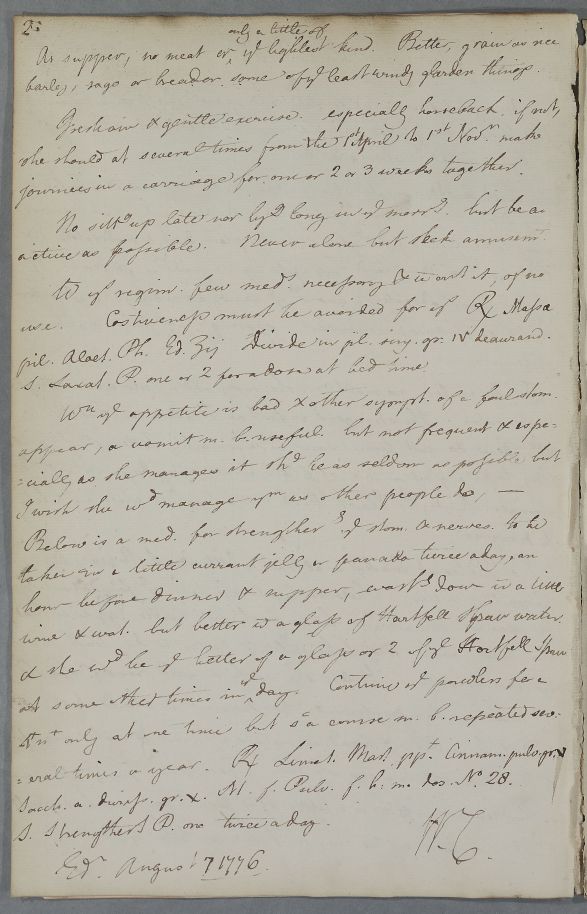 2.
only a little of
At supper, no meat or yᵉ lightest kind. Better, grain as rice
barley, sago or bread or some of yᵉ least windy garden things.
Fresh air & gentle exercise. especially horseback, if not,
she should at several times from the 1ˢᵗ April to 1ˢᵗ Novʳ. make
journeies in a carriage for one or 2 or 3 weeks together.
No sittᵍ up late nor lyᵍ long in yᵉ mornᵍ. but be as
active as possible. Never alone but seek amusemᵗ.
Wᵗ yˢ regim. few medˢ. necessary & wᵗout it, of no
use. Costiveness must be avoided for yˢ ℞ Massæ
pil. Aloet. Ph. Ed. ʒij Divide in pil. sing. gr. iv deaurand.
S. Laxat. P. one or 2 for a dose at bed time
Wⁿ yᵉ appetite is bad & other sympt. of a foul stom.
appear, a vomit m. b. useful. but not frequent & espe=
=cially as she manages it shᵈ be as seldom as possible but
I wish she wᵈ manage yᵐ as other people do, —
Below is a med. for strengthenᵍ yᵉ stom. & nerves. to be
taken in a little currant jelly or panada twice a day, an
hour before dinner & supper, washᵈ down wᵗ a little
wine & wat. but better wᵗ a glass of Hartfell Spaw water
& she wᵈ be yᵉ better of a glass or 2 of yᵉ Hartfell Spaw
at some other times in yᵉ day. Continue yᵉ powders for a
only at one time but a course m. b. repeated sev=
=eral times a year. ℞ Limat. Mart. ppᵗ. Cinnam. pulv. gr. v
Sacch. a. gr. x. M. f. Pulv. f. h. m. dos. Nº. 28.
S. Strengthenᵍ P. one twice a day.
W. C.
Edʳ. August 7 1776.